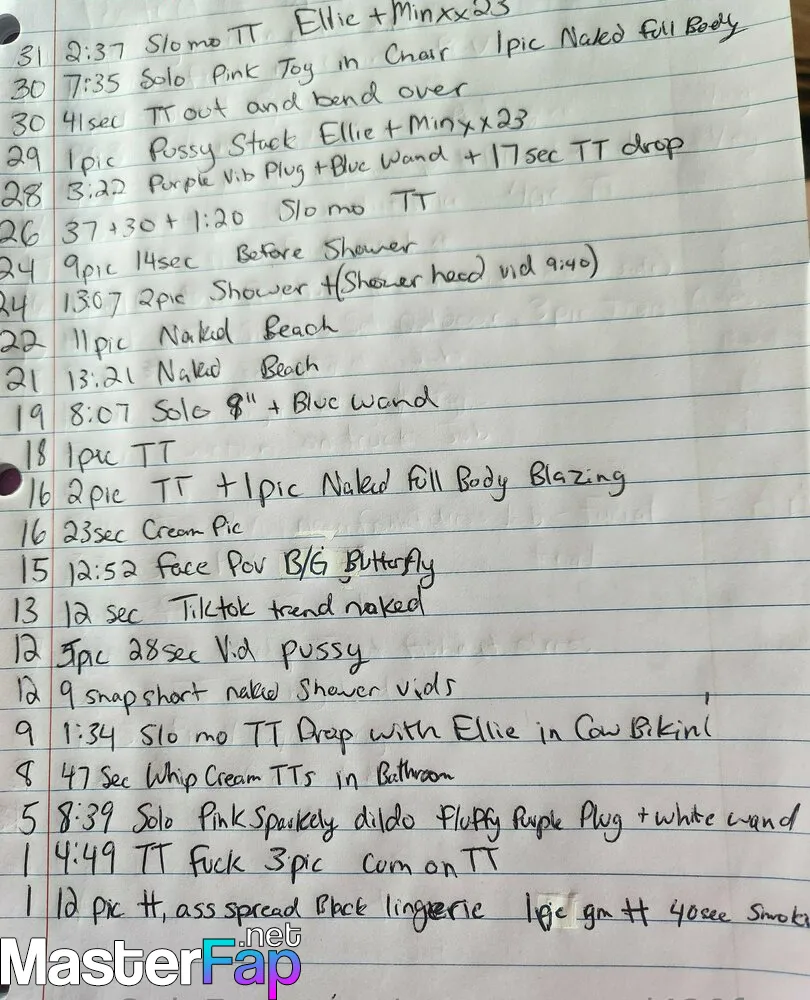 31 2:37 Slo mo TT Ellie + Minxx23
30 7:35 Solo Pink Toy in Chair 1pic Naked Full Body
30 41sec TT out and bend over
29 1pic Pussy Stack Ellie + Minxx23
28 3:22 Purple Vib Plug + Blue Wand + 17sec TT drop
26 37 + 30 + 1:20 Slo mo TT
24 9pic 14sec Before Shower
24 13:07 2pic Shower + (Shower head vid 9:40)
22 11pic Naked Beach
21 13:21 Naked Beach
19 8:07 Solo 8" + Blue Wand
18 1pic TT
16 2pic TT + 1pic Naked Full Body Blazing
16 23sec Cream Pic
15 12:52 Face Pov B/G Butterfly
13 12 sec Tiktok trend naked
12 5pic 28sec Vid pussy
12 9 snap short naked Shower vids
9 1:34 Slo mo TT Drop with Ellie in Cow Bikini
8 47 Sec Whip Cream TTs in Bathroom
5 8:39 Solo Pink Sparkely dildo Fluffy Purple Plug + white wand
1 4:49 TT Fuck 3pic Cum on TT
1 12 pic tt, ass spread Black lingerie 1pic gm tt 40sec Smoki
MasterFap.net